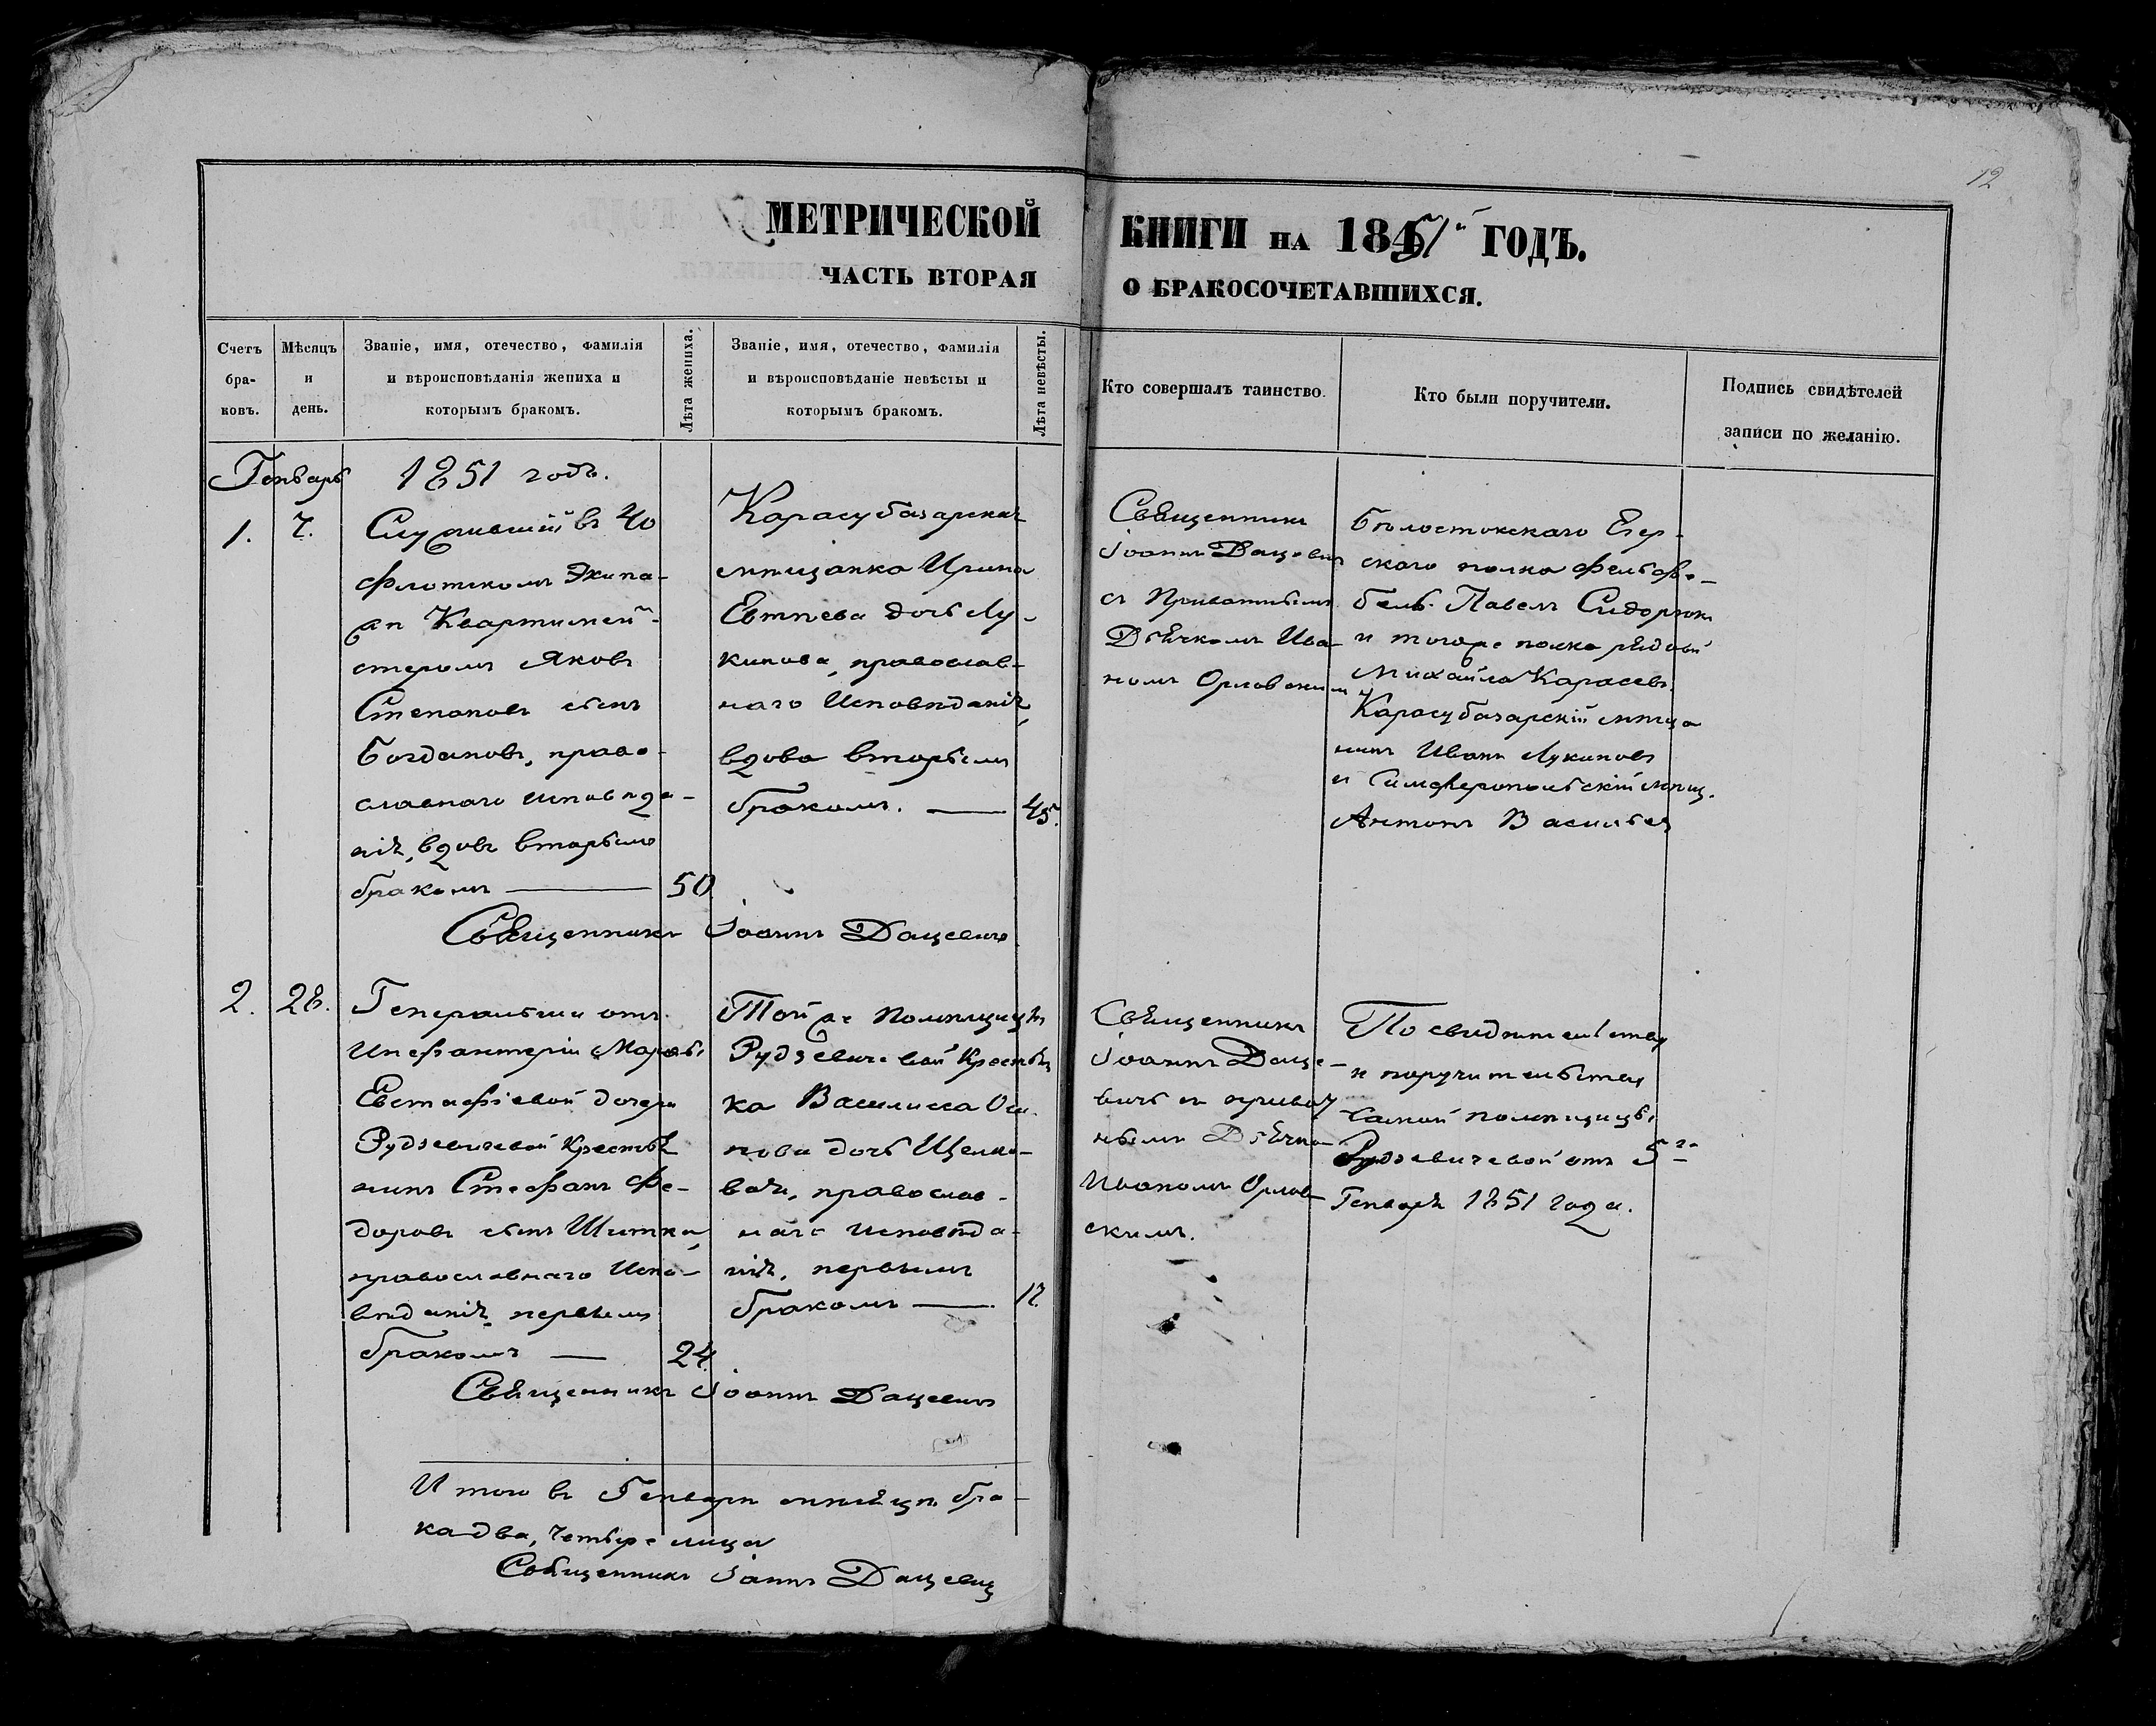 12
МЕТРИЧЕСКОЙ КНИГИ НА 1851й ГОДЪ.
ЧАСТЬ ВТОРАЯ О БРАКОСОЧЕТАВШИХСЯ.
Счетъ
бра-
ковъ.
Мѣсяцъ
и
день.
Званіе, имя, отечество, фамилія
и вѣроисповѣданія жениха и
которымъ бракомъ.
Лѣта жениха.
Званіе, имя, отечество, фамилія
и вѣроисповѣданіе невѣсты и
которымъ бракомъ.
Лѣта невѣсты.
Кто совершалъ таинство.
Кто были поручители.
Подпись свидѣтелей
записи по желанію.
Генварь 1851 годъ.
1.
7.
Служившій въ 40
флотскомъ Экипа-
жѣ Квартимей-
стеромъ Яковъ
Степановъ сынъ
Богдановъ, право-
славнаго исповѣда-
нія, вдовъ вторымъ
бракомъ — 50
Карасубазарская
мѣщанка Ирина
Евтѣева дочь Лу-
кинова, православ-
наго Исповѣданія,
вдова вторымъ
бракомъ. — 45.
Священникъ
Іоаннъ Дацевичъ
съ Приватнымъ
Дьячкомъ Ива-
номъ Орловскимъ
Бѣлостокскаго Егер-
скаго полка Фельдфе-
бель Павелъ Сидорюкъ
и тогоже полка рядовой
Михайла Карасевъ.
Карасубазарскій мѣща
нинъ Иванъ Лукиновъ
и Симферопольскій мѣщ.
Антонъ Васильев
Священникъ Іоаннъ Дацевичъ
2.
28.
Генеральши отъ
Инфантеріи Марѳы
Евстафіевой дочери
Рудзевичевой Крестья
нинъ Стефанъ Фе-
доровъ сынъ Шитка,
православнаго Испо-
вѣданія, первымъ
бракомъ — 24.
Той же Помѣщицы
Рудзевичевой Крестьян
ка Василиса Оси
пова дочь Щелко-
вая, православ-
наго исповѣда-
нія, первымъ
бракомъ — 17.
Священникъ
Іоаннъ Даце-
вичъ съ приват
нымъ Дьячко-
Иваномъ Орлов-
скимъ.
По свидѣтельству
и поручительству
самой помѣщицы
Рудзевичевой отъ 5го
Генваря 1851 года.
Священникъ Іоаннъ Дацевичъ
Итого въ Генварѣ мѣсяцѣ бра-
ка два, четыре лица
Священникъ Іоаннъ Дацевич